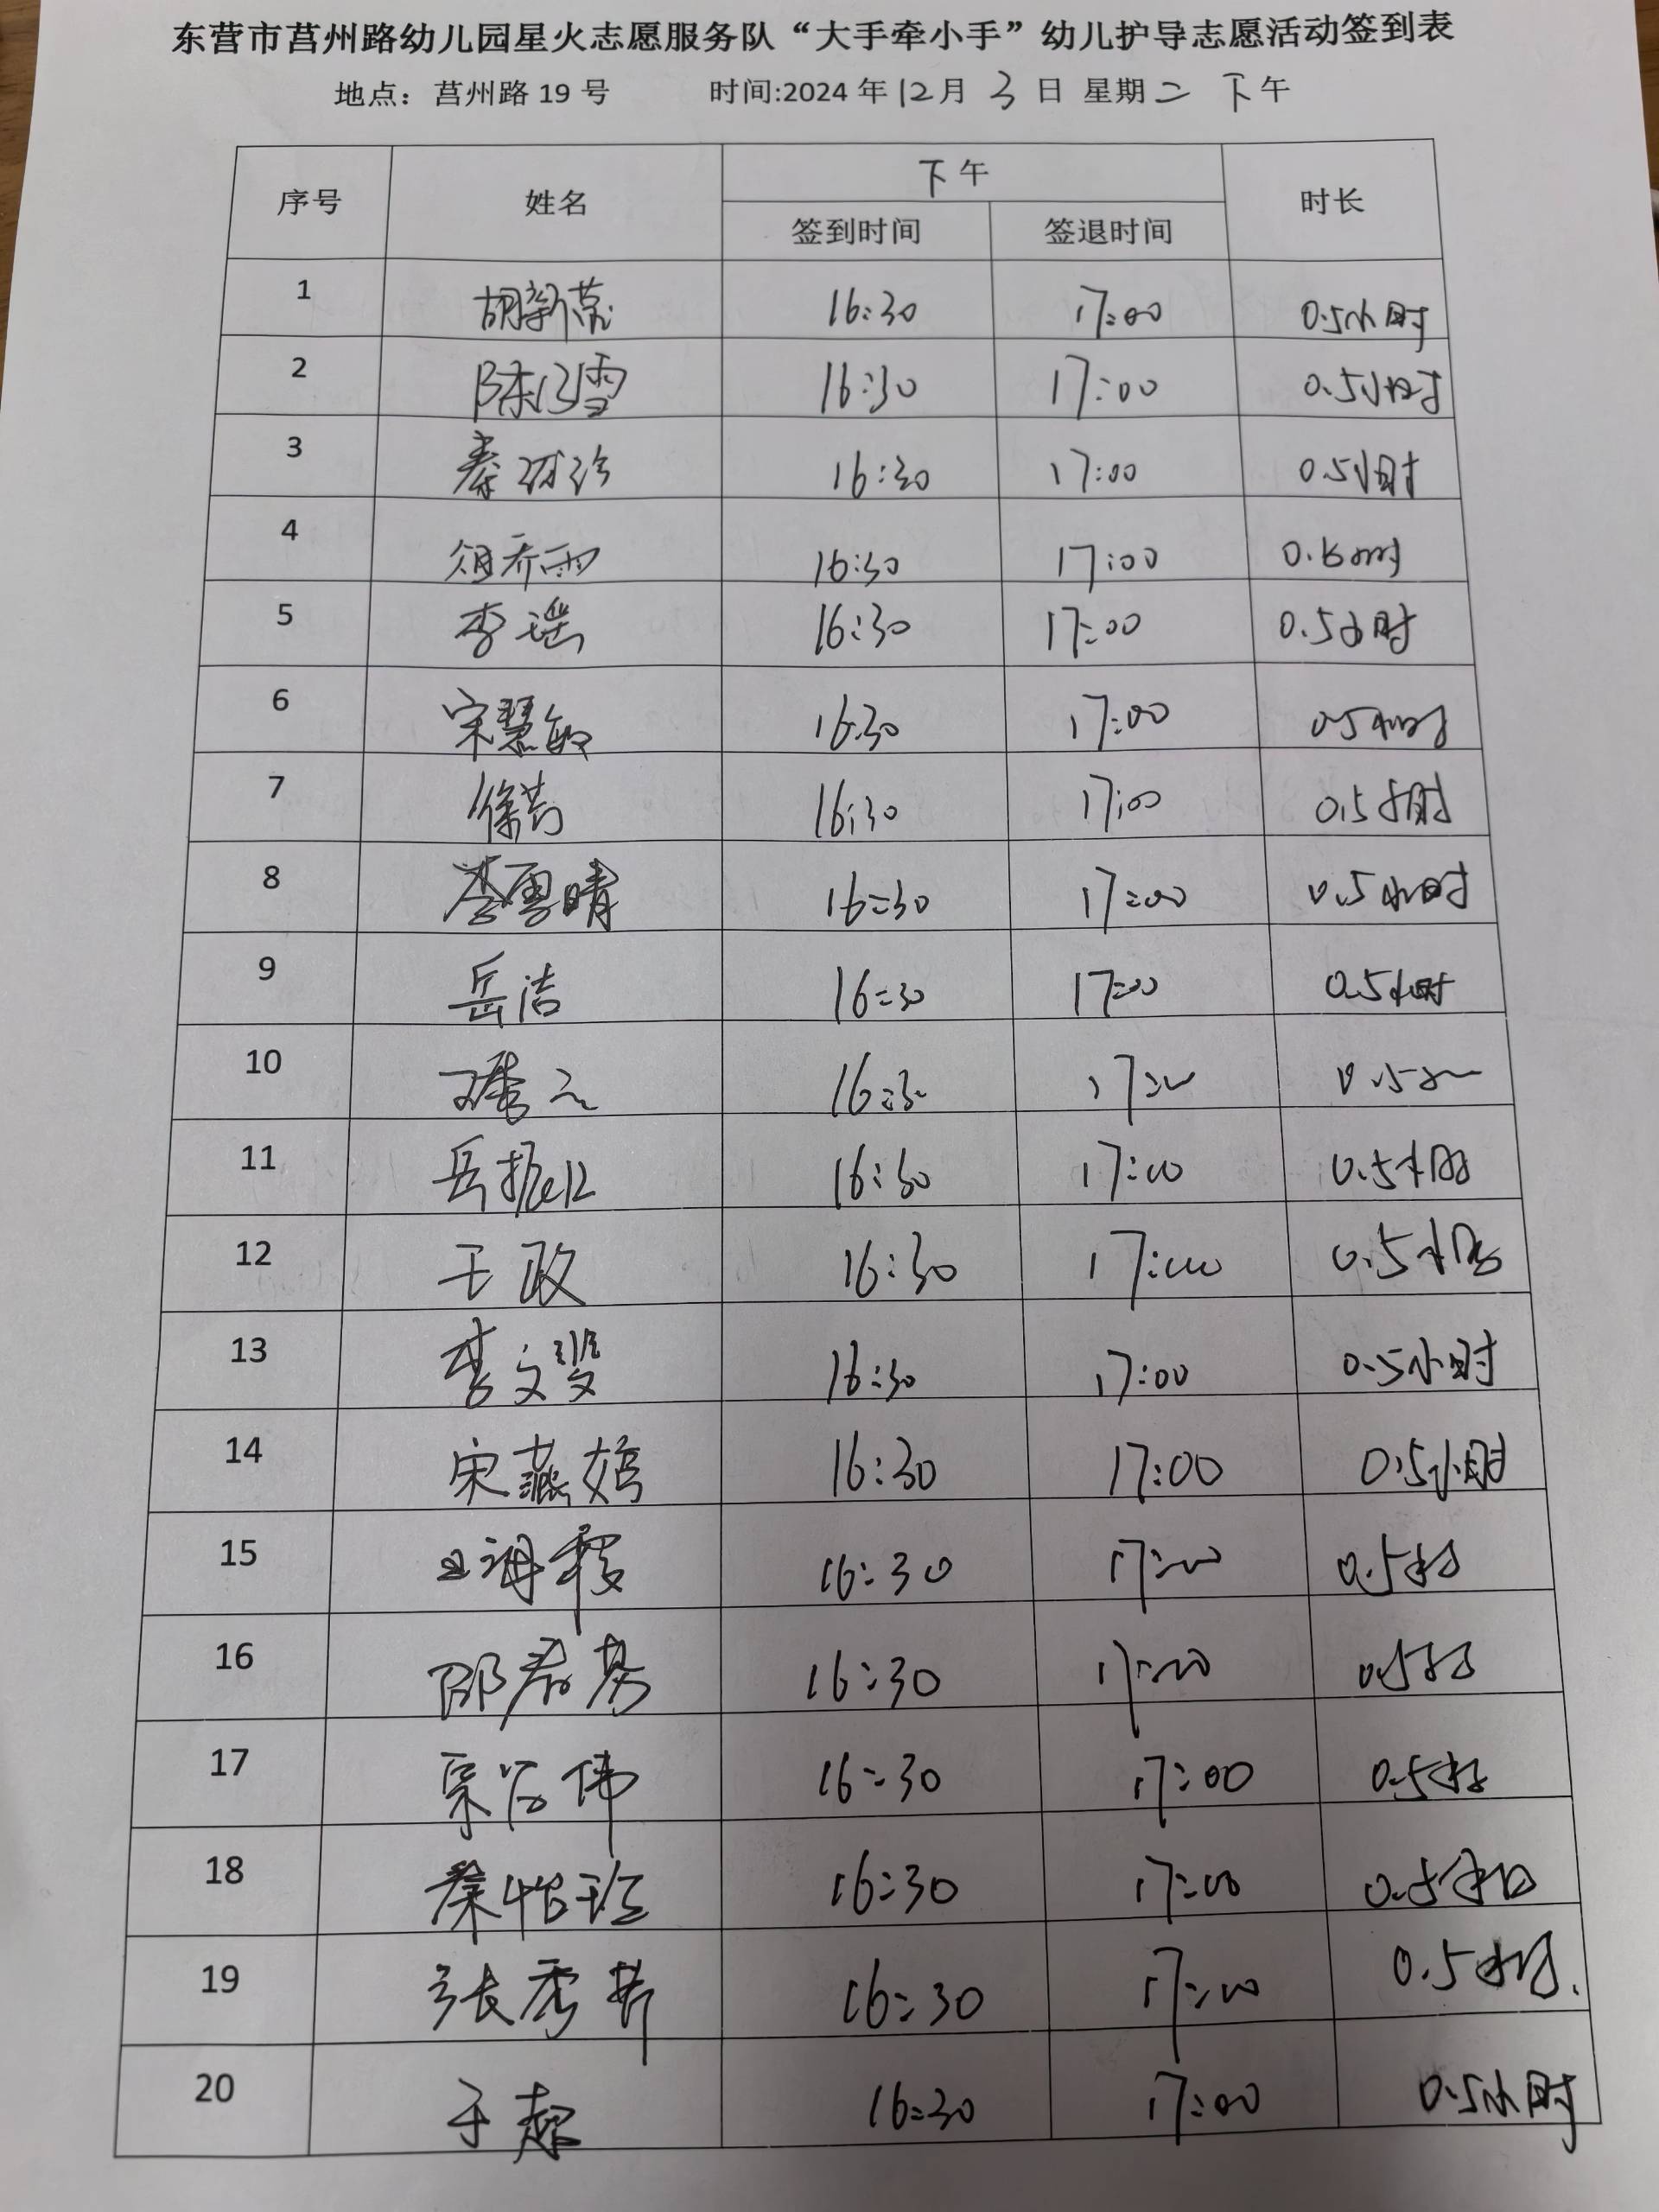 东营市莒州路幼儿园星火志愿服务队“大手牵小手”幼儿护导志愿活动签到表
地点：莒州路19号 时间:2024年12月3日 星期二 下午
序号 姓名 下午 时长
签到时间 签退时间
1 胡新蕊 16:30 17:00 0.5小时
2 陈 雪 16:30 17:00 0.5小时
3 秦 16:30 17:00 0.5小时
4 乔雨 16:30 17:00 0.5小时
5 李瑶 16:30 17:00 0.5小时
6 宋慧敏 16:30 17:00 0.5小时
7 徐 16:30 17:00 0.5小时
8 李雪晴 16:30 17:00 0.5小时
9 岳洁 16:30 17:00 0.5小时
10 16:30 17:00 0.5小时
11 岳振 16:30 17:00 0.5小时
12 王政 16:30 17:00 0.5小时
13 李文翠 16:30 17:00 0.5小时
14 宋燕嫣 16:30 17:00 0.5小时
15 王海霞 16:30 17:00 0.5小时
16 邵 16:30 17:00 0.5小时
17 伟 16:30 17:00 0.5小时
18 秦 班 16:30 17:00 0.5小时
19 张秀 16:30 17:00 0.5小时
20 于超 16:30 17:00 0.5小时